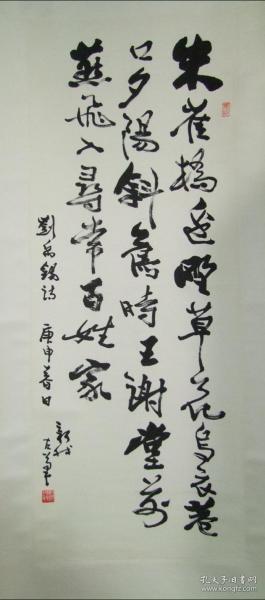 朱雀橋边野草花烏衣巷
口夕陽斜舊時王謝堂前
燕飛入尋常百姓家
劉禹錫詩 庚申春日
孔夫子旧书网